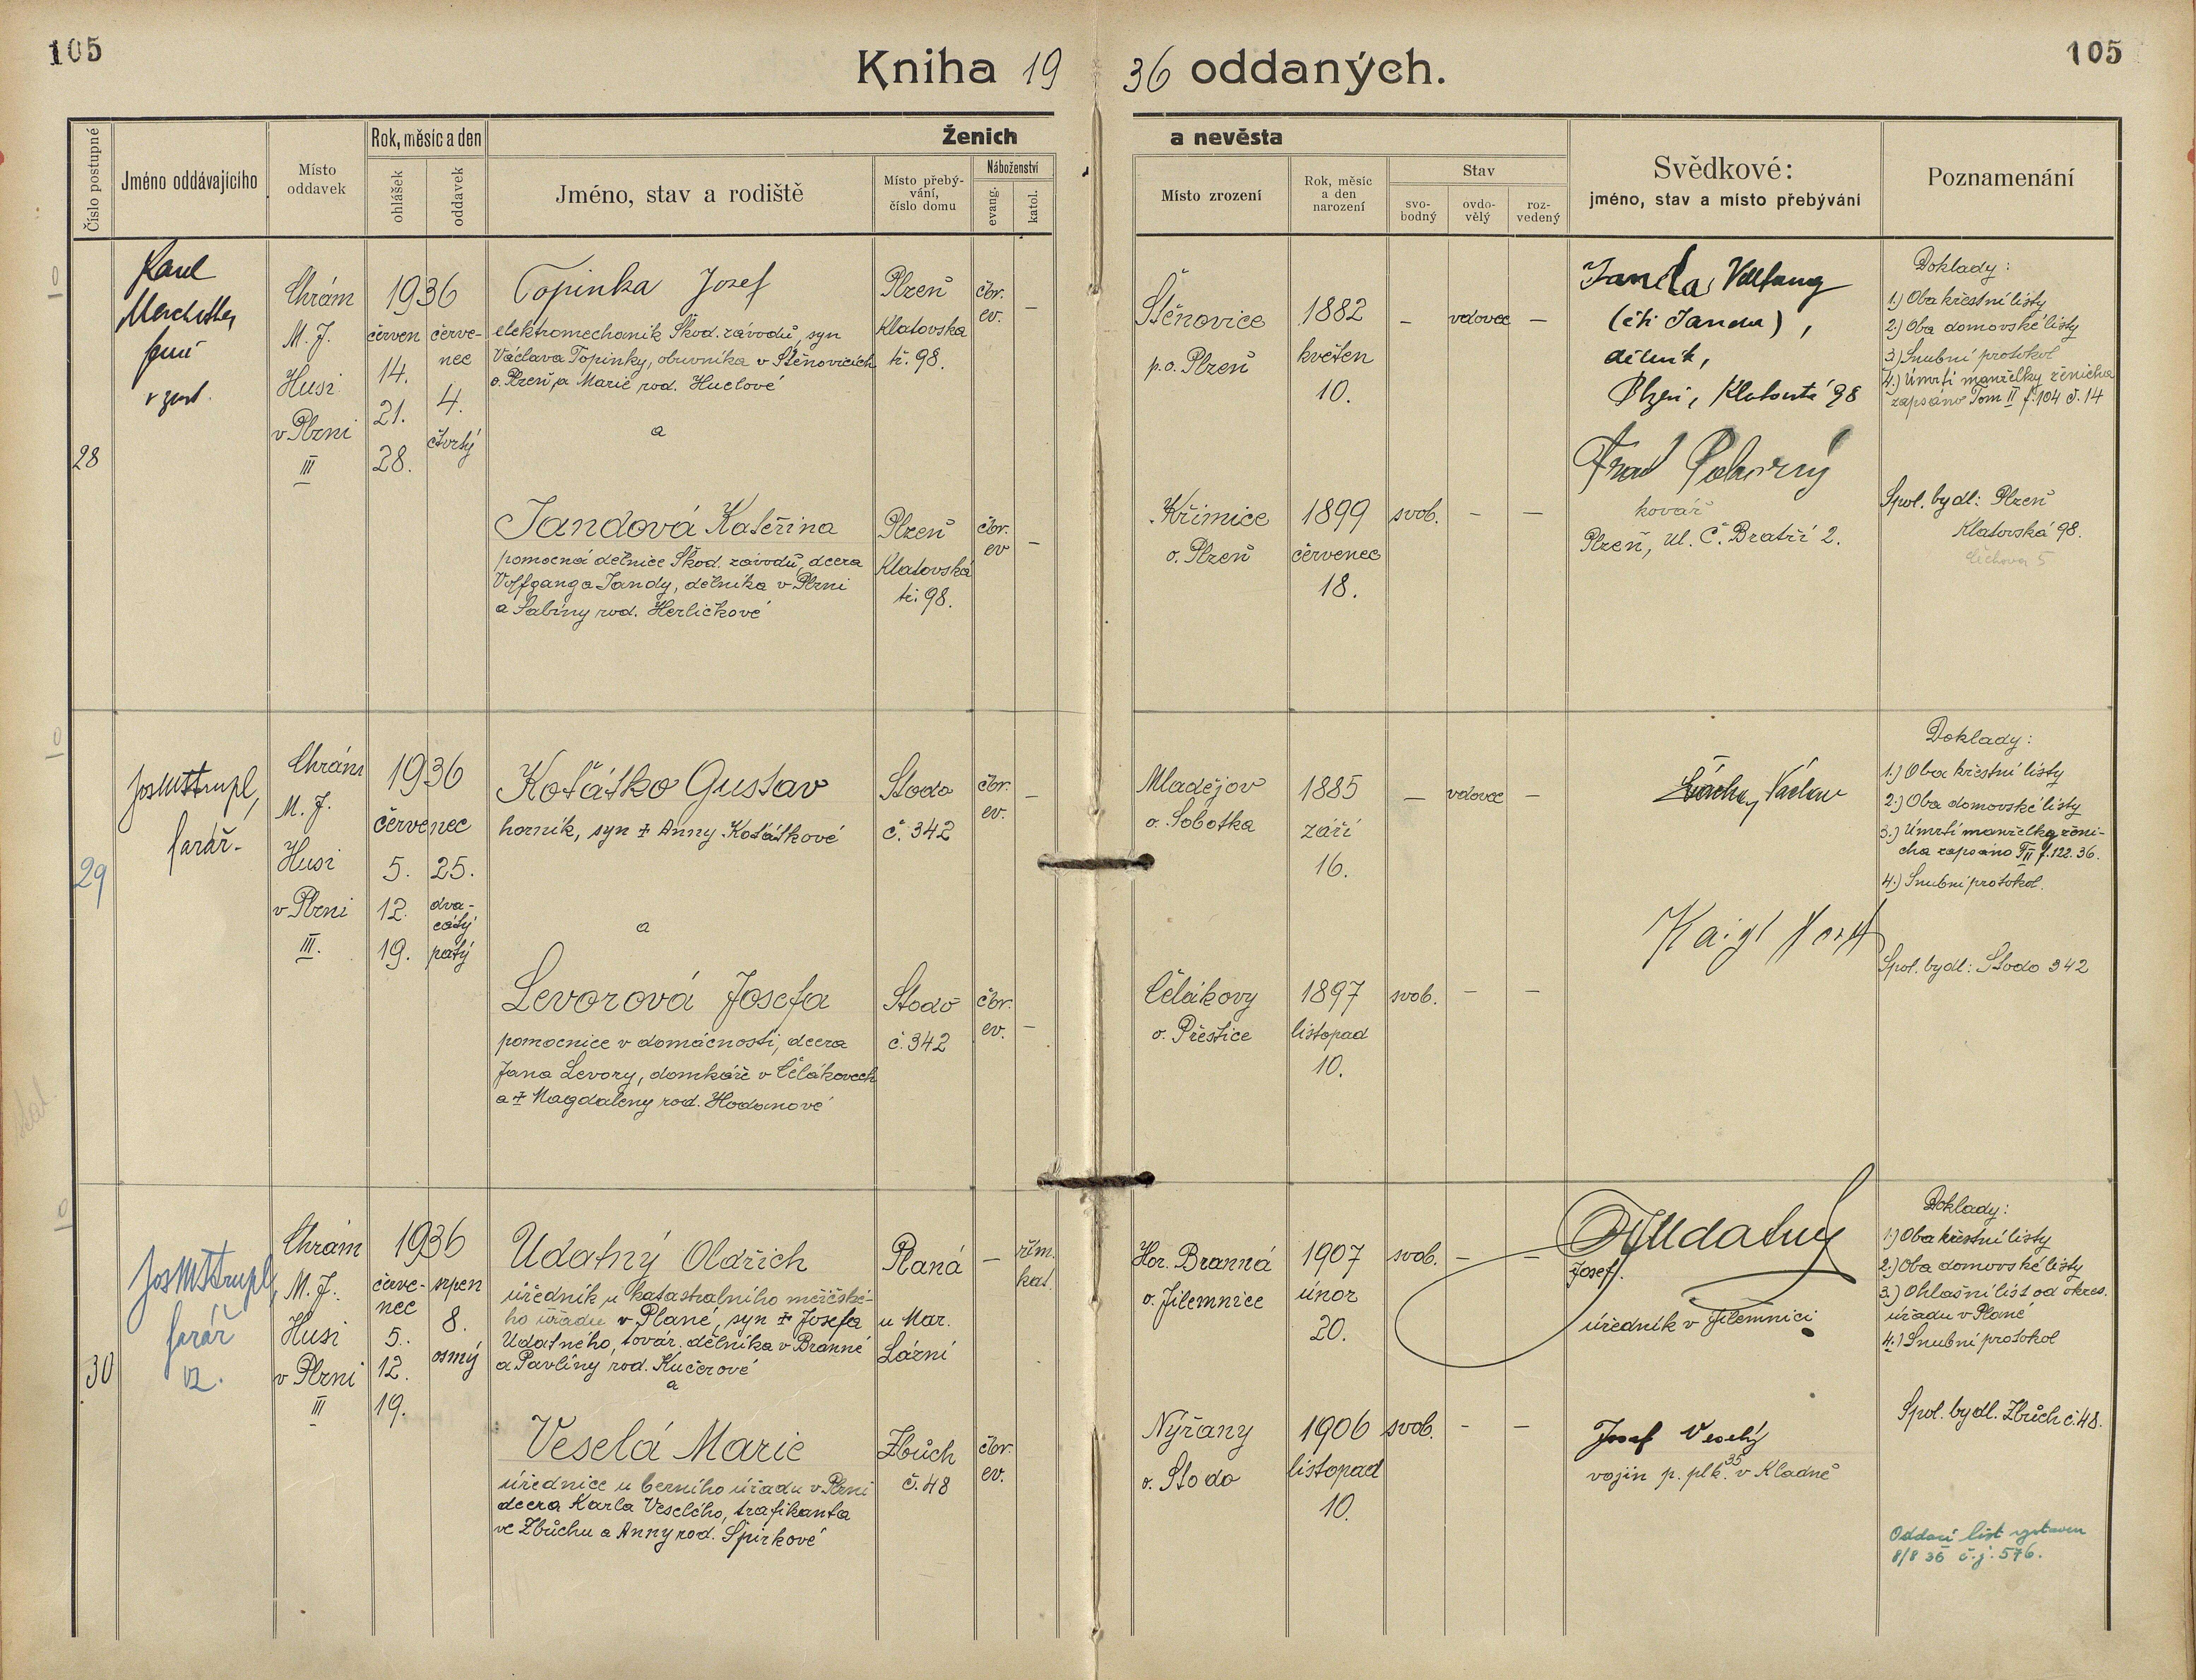 105
Kniha 1936 oddaných.
105
Číslo postupné
Jméno oddávajícího
Místo oddavek
Rok, měsíc a den
ohlášek
oddavek
Ženich
a nevěsta
Jméno, stav a rodiště
Místo přebý-
vání,
číslo domu
Náboženství
evang.
katol.
Místo zrození
Rok, měsíc
a den
narození
Stav
svo-
bodný
ovdo-
vělý
roz-
vedený
Svědkové:
jméno, stav a místo přebývání
Poznamenání
28
Karel
Chrám
M. J.
Husi
v Plzni
III
1936
červen
14.
21.
28.
červe-
nec
4.
čtvrtý
Topinka Josef
elektromechanik Škod. závodů, syn
Václava Topinky, obuvníka v Štěnovicích
o. Plzeň, a Marie rod. Huclové
a
Plzeň
Klatovska
tř. 98.
čbr.
ev.
–
Štěnovice
p. o. Plzeň
1882
květen
10.
–
vdovec
–
Janda
(čti Janda),
dělník,
Plzeň, Klatovská 98
Doklady:
1.) Oba křestní listy
2.) Oba domovské listy
3.) Snubní protokol
4.) Úmrtí manželky ženicha
zapsáno Tom II f. 104 č. 14
Jandová Kateřina
pomocná dělnice Škod. závodů, dcera
Volfganga Jandy, dělníka v Plzni
a Sabiny rod. Herličkové
Plzeň
Klatovská
tř. 98.
čbr.
ev
–
Křimice
o. Plzeň
1899
červenec
18.
svob.
–
–
Pokorný
kovář
Plzeň, ul. Č. Bratří 2.
Spol. bydl: Plzeň
Klatovská 98.
29
Jos M Štrupl,
farář.
Chrám
M. J.
Husi
v Plzni
III.
1936
červenec
5.
12.
19.
25.
dva-
cátý
pátý
Koťátko Gustav
horník, syn † Anny Koťátkové
a
Stodo
č. 342
čbr.
ev.
–
Mladějov
o. Sobotka
1885
září
16.
–
vdovec
–
Václav
Doklady:
1.) Oba křestní listy
2.) Oba domovské listy
3.) Úmrtí manželky ženi-
cha zapsáno T II f. 122. 36.
4.) Snubní protokol.
Levorová Josefa
pomocnice v domácnosti, dcera
Jana Levory, domkáře v Čelákovech
a † Magdaleny rod. Hodanové
Stodo
č. 342
čbr.
ev.
–
Čelákovy
o. Přeštice
1897
listopad
10.
svob.
–
–
Kaigl
Spol. bydl: Stodo 342
30
Jos M Štrupl,
farář
Chrám
M. J.
Husi
v Plzni
III
1936
červe-
nec
5.
12.
19.
srpen
8.
osmý
Udatný Oldřich
úředník u katastralního měřičské-
ho úřadu v Plané, syn † Josefa
Udatného, továr. dělníka v Branné
a Pavlíny rod. Kučerové
a
Planá
u Mar.
Lázní
–
řím.
kat.
Hor. Branná
o. Jilemnice
1907
únor
20.
svob.
–
–
Udatný
Josef.
úředník v Jilemnici
Doklady:
1.) Oba křestní listy
2.) Oba domovské listy
3.) Ohlašní list od okres.
úřadu v Plané
4.) Snubní protokol
Veselá Marie
úřednice u berního úřadu v Plzni
dcera Karla Veselého, trafikanta
ve Zbůchu a Anny rod. Špirkové
Zbůch
č. 48
čbr.
ev.
Nýřany
o. Stodo
1906
listopad
10.
svob.
–
–
Josef Veselý
vojín p. plk. 35 v Kladně
Spol. bydl. Zbůch č. 48.
Oddací list vystaven
8/8 36 č. j. 576.